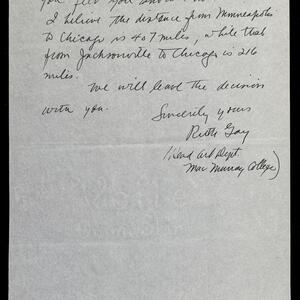 I believe the distance from Minneapolis
to Chicago is 407 miles, while that
from Jacksonville to Chicago is 216
miles.
We will leave the decision
with you.
Sincerely yours
Ruth Gay
(Head Art Dept.
Mac Murray College)